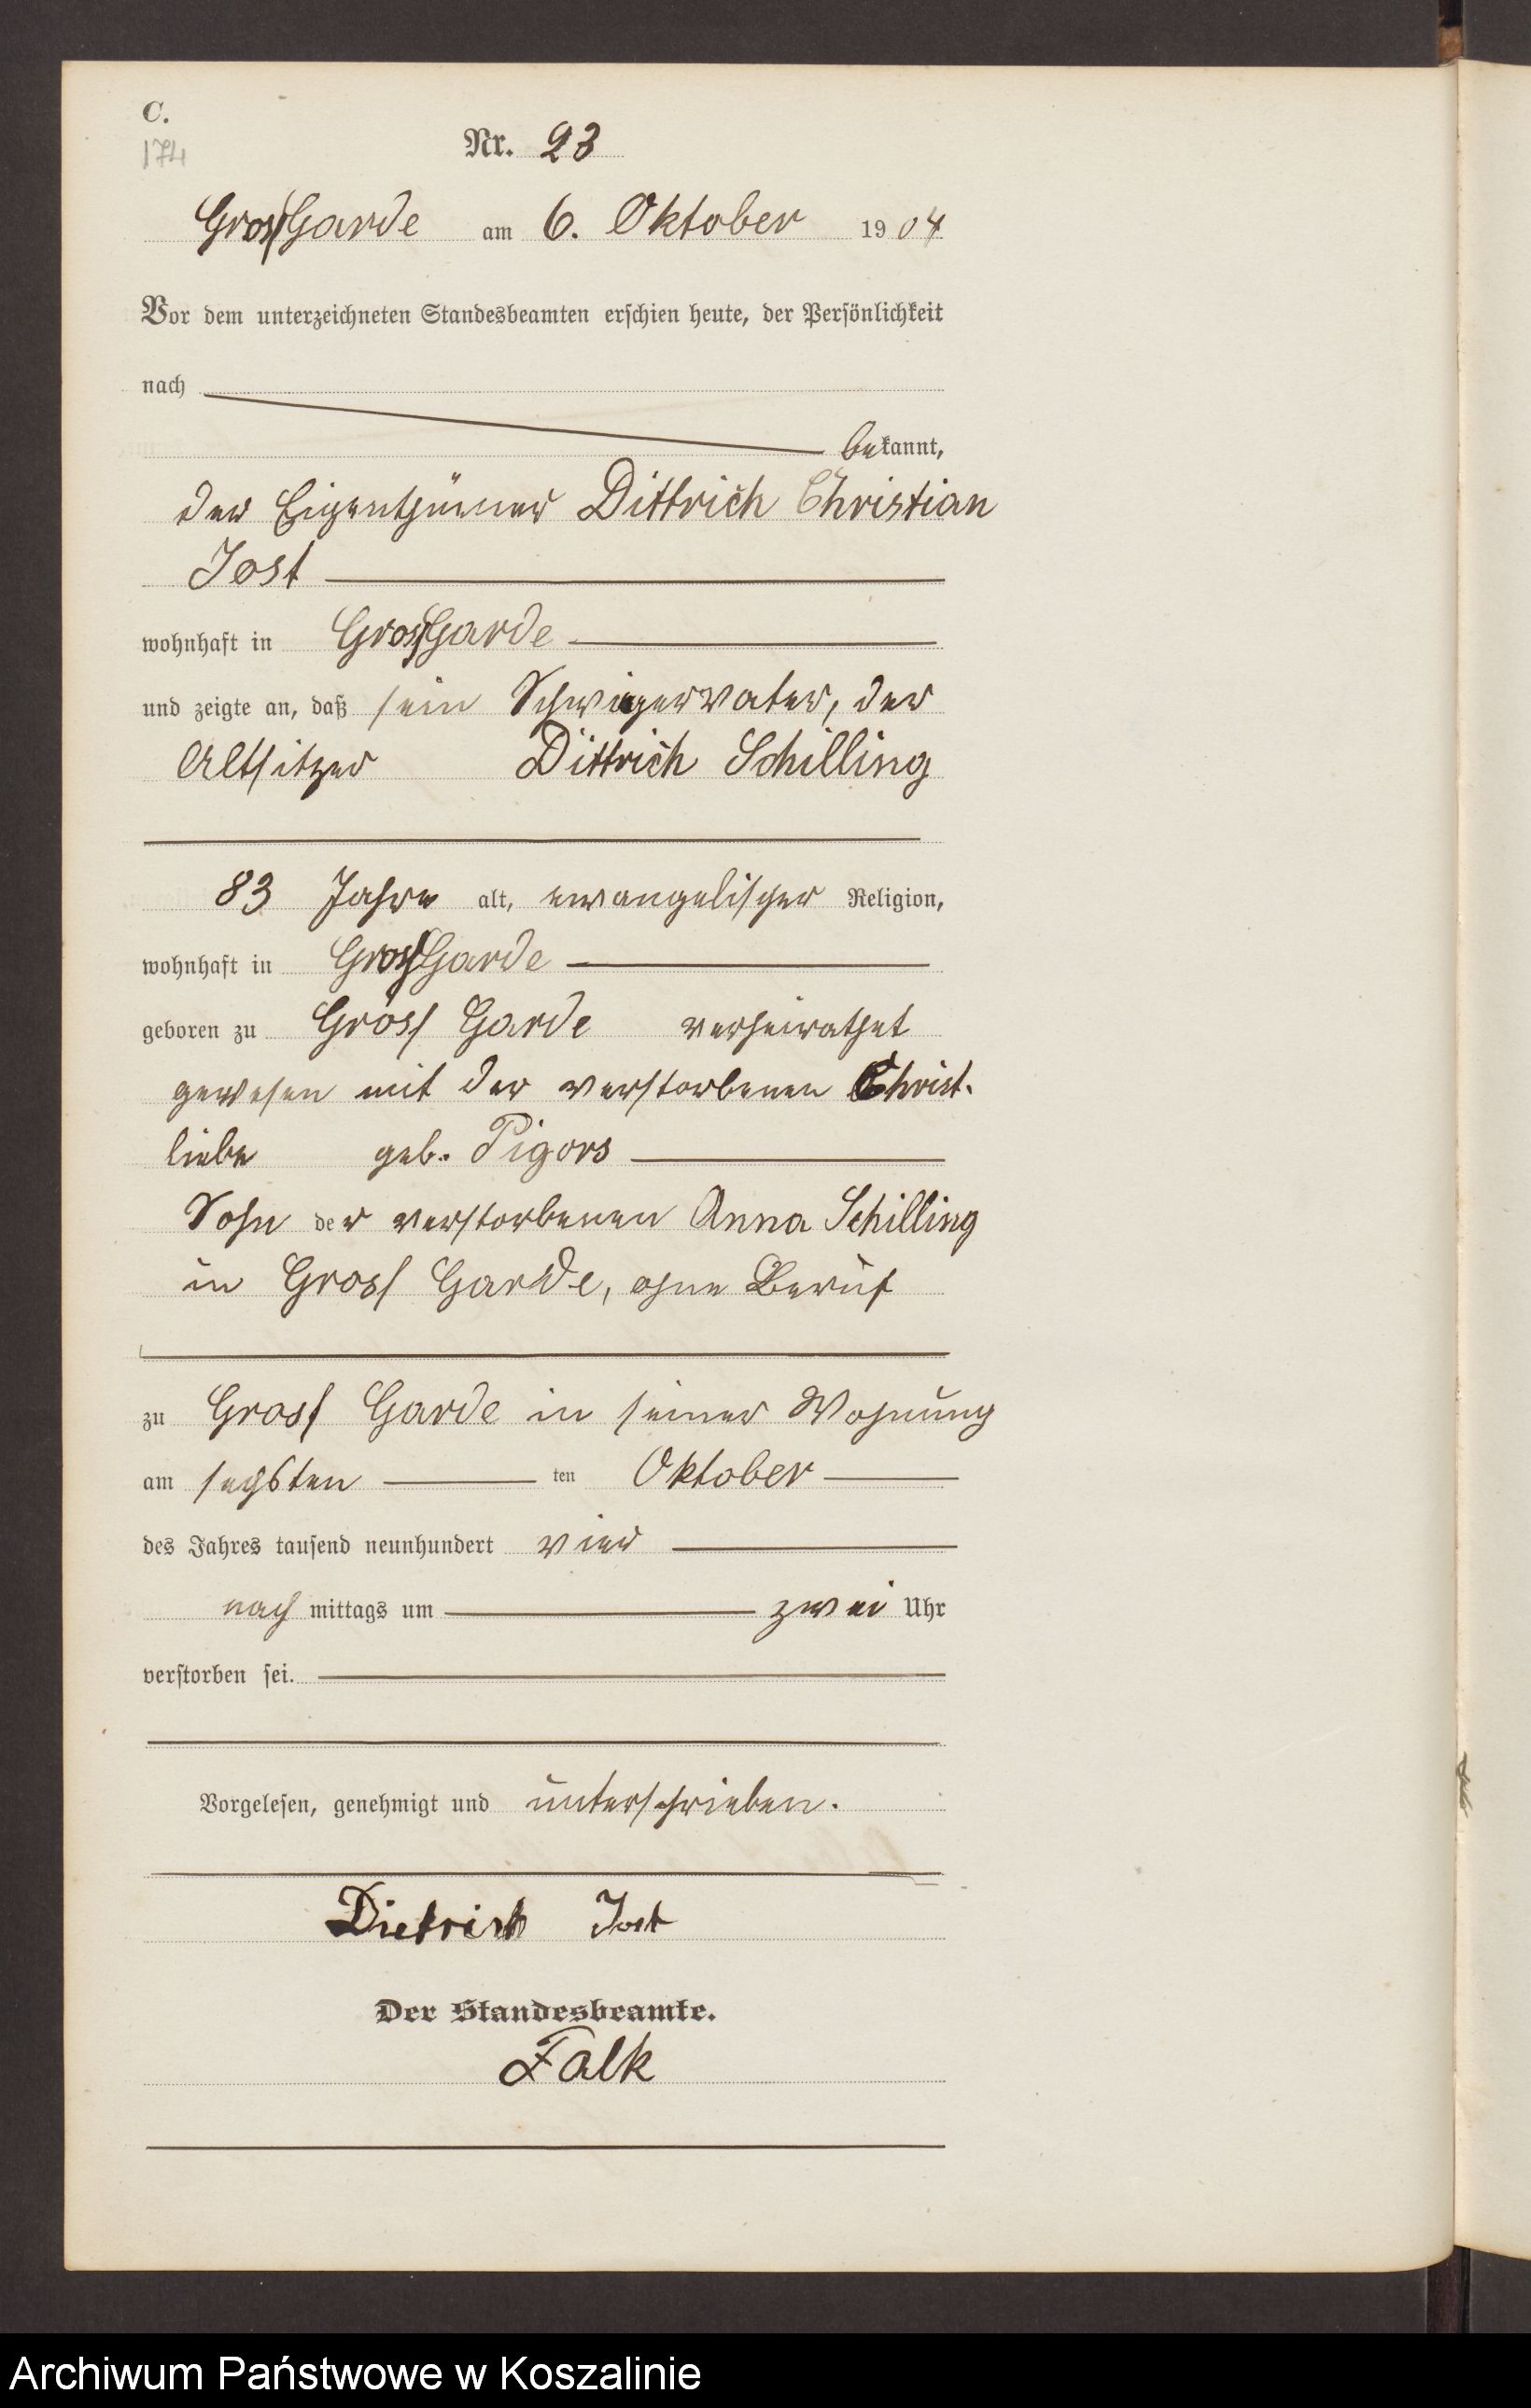 C.
174
Nr. 23
Gross Garde am 6. Oktober 1904
Vor dem unterzeichneten Standesbeamten erschien heute, der Persönlichkeit
nach
bekannt,
der Eigenthümer Dittrich Christian
Jost
wohnhaft in Gross Garde
und zeigte an, daß sein Schwiegervater, der
Altsitzer Dittrich Schilling
83 Jahre alt, evangelischer Religion,
wohnhaft in Gross Garde
geboren zu Gross Garde verheirathet
gewesen mit der verstorbenen Christ-
liebe geb. Pigors
Sohn der verstorbenen Anna Schilling
in Gross Garde, ohne Beruf
zu Gross Garde in seiner Wohnung
am sechsten ten Oktober
des Jahres tausend neunhundert vier
nachmittags um zwei Uhr
verstorben sei.
Vorgelesen, genehmigt und unterschrieben.
Dietrich Jost
Der Standesbeamte.
Falk
Archiwum Państwowe w Koszalinie